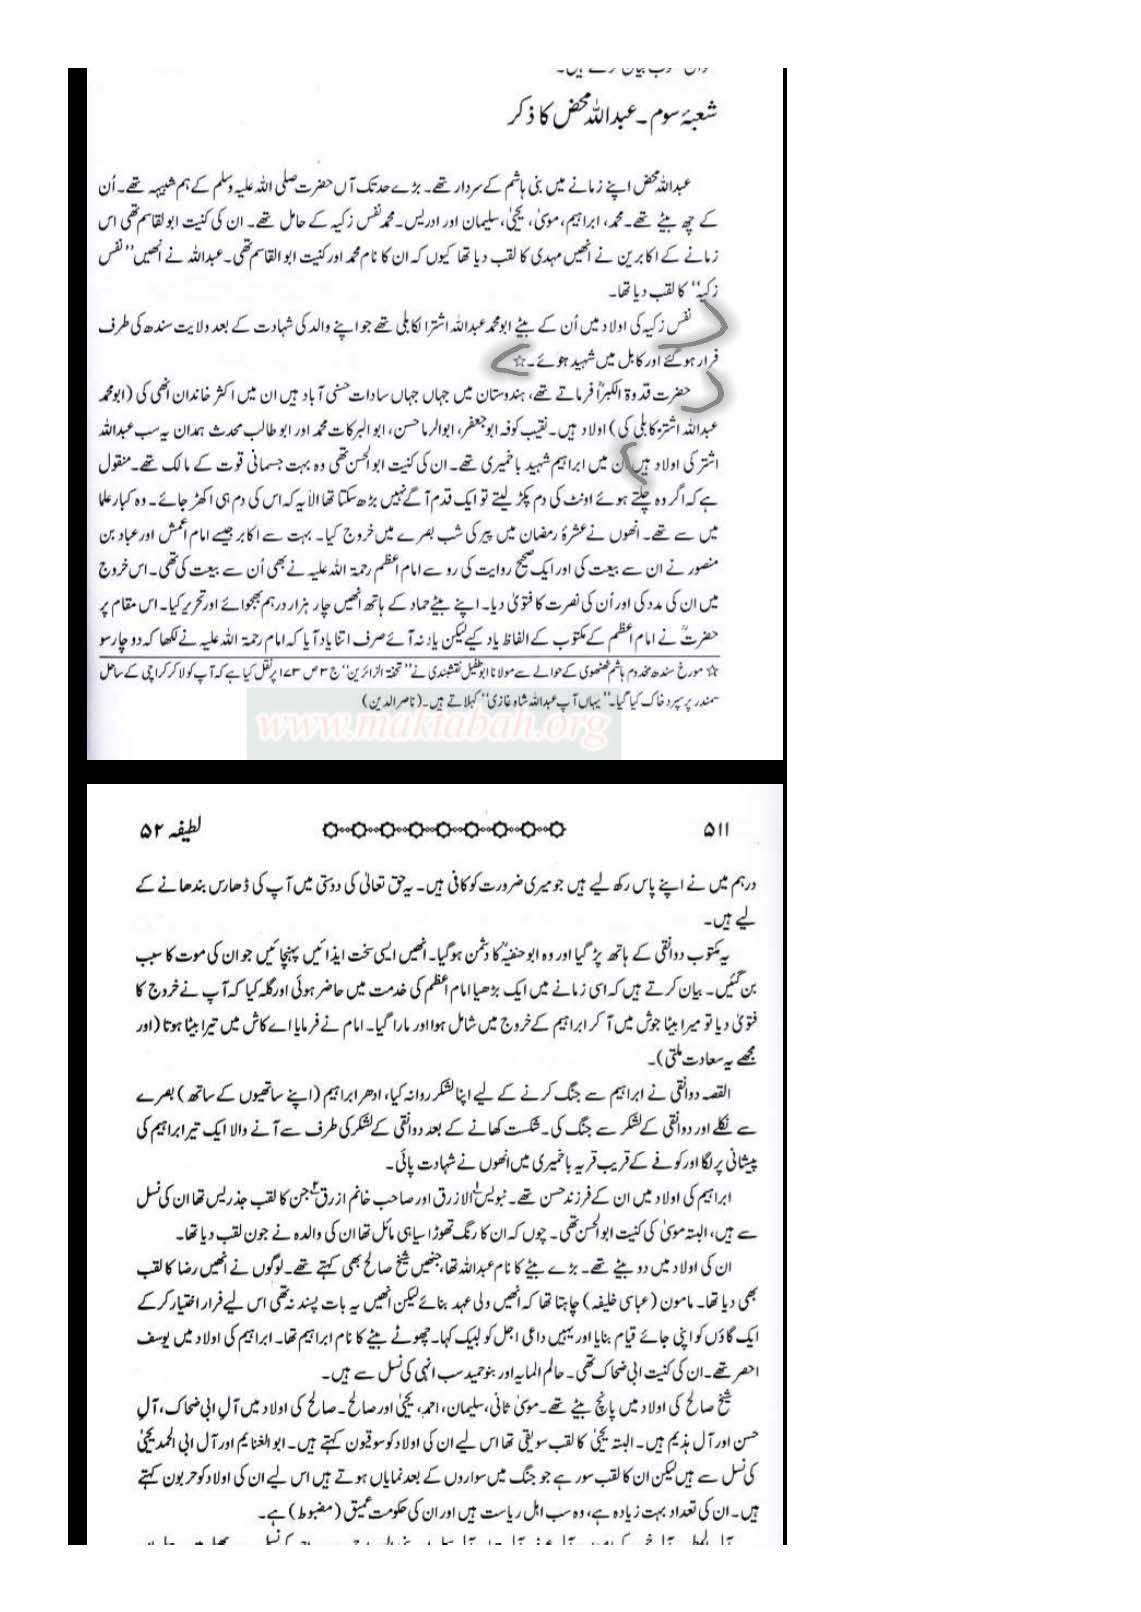 شعبۂ سوم۔ عبداللہ محض کا ذکر
عبداللہ محض اپنے زمانے میں بنی ہاشم کے سردار تھے۔ بڑے حد تک آں حضرت صلی اللہ علیہ وسلم کے ہم شبیہہ تھے۔ اُن
کے چھ بیٹے تھے۔ محمد، ابراہیم، موسیٰ، یحییٰ، سلیمان اور ادریس۔ محمد نفس زکیہ کے حامل تھے۔ ان کی کنیت ابولقاسم تھی اس
زمانے کے اکابرین نے انھیں مہدی کا لقب دیا تھا کیوں کہ ان کا نام محمد اور کنیت ابو القاسم تھی۔ عبداللہ نے انھیں ’’نفس
زکیہ‘‘ کا لقب دیا تھا۔
نفس زکیہ کی اولاد میں اُن کے بیٹے ابو محمد عبداللہ اشترا لکابلی تھے جو اپنے والد کی شہادت کے بعد ولایت سندھ کی طرف
فرار ہوگئے اور کابل میں شہید ہوئے۔☆
حضرت قدوۃ الکبراؒ فرماتے تھے، ہندوستان میں جہاں جہاں سادات حسنی آباد ہیں ان میں اکثر خاندان انھی کی (ابومحمد
عبداللہ اشتر کابلی کی) اولاد ہیں۔ نقیب کوفہ ابوجعفر، ابوالرما حسن، ابو البرکات محمد اور ابو طالب محدث ہمدان یہ سب عبداللہ
اشتر کی اولاد ہیں ان میں ابراہیم شہید باخمیری تھے۔ ان کی کنیت ابوالحسن تھی وہ بہت جسمانی قوت کے مالک تھے۔ منقول
ہے کہ اگر وہ چلتے ہوئے اونٹ کی دم پکڑ لیتے تو ایک قدم آگے نہیں بڑھ سکتا تھا الاّ یہ کہ اس کی دم ہی اکھڑ جائے۔ وہ کبار علما
میں سے تھے۔ انھوں نے عشرۂ رمضان میں پیر کی شب بصرے میں خروج کیا۔ بہت سے اکابر جیسے امام اعمش اور عباد بن
منصور نے ان سے بیعت کی اور ایک صحیح روایت کی رو سے امام اعظم رحمۃ اللہ علیہ نے بھی اُن سے بیعت کی تھی۔ اس خروج
میں ان کی مدد کی اور اُن کی نصرت کا فتویٰ دیا۔ اپنے بیٹے حماد کے ہاتھ انھیں چار ہزار درہم بھجوائے اور تحریر کیا۔ اس مقام پر
حضرتؒ نے امام اعظم کے مکتوب کے الفاظ یاد کیے لیکن یاد نہ آئے صرف اتنا یاد آیا کہ امام رحمۃ اللہ علیہ نے لکھا کہ دو چار سو
☆ مورخ سندھ مخدوم ہاشم ٹھٹھوی کے حوالے سے مولانا ابو طفیل نقشبندی نے ’’تحفۃ الزائرین‘‘ ج ۳ ص ۱۷۳ پر نقل کیا ہے کہ آپ کو لا کر کراچی کے ساحل
سمندر پر سپرد خاک کیا گیا۔ ’’یہاں آپ عبداللہ شاہ غازی‘‘ کہلاتے ہیں۔ (ناصر الدین)
www.maktabah.org
۵۱۱ لطیفہ ۵۲
درہم میں نے اپنے پاس رکھ لیے ہیں جو میری ضرورت کو کافی ہیں۔ یہ حق تعالیٰ کی دوستی میں آپ کی ڈھارس بندھانے کے
لیے ہیں۔
یہ مکتوب دوانقی کے ہاتھ پڑ گیا اور وہ ابو حنفیہؒ کا دشمن ہوگیا۔ انھیں ایسی سخت ایذائیں پہنچائیں جو ان کی موت کا سبب
بن گئیں۔ بیان کرتے ہیں کہ اسی زمانے میں ایک بڑھیا امام اعظم کی خدمت میں حاضر ہوئی اور گلہ کیا کہ آپ نے خروج کا
فتویٰ دیا تو میرا بیٹا جوش میں آ کر ابراہیم کے خروج میں شامل ہوا اور مارا گیا۔ امام نے فرمایا اے کاش میں تیرا بیٹا ہوتا (اور
مجھے یہ سعادت ملتی)۔
القصہ دوانقی نے ابراہیم سے جنگ کرنے کے لیے اپنا لشکر روانہ کیا، ادھر ابراہیم (اپنے ساتھیوں کے ساتھ) بصرے
سے نکلے اور دوانقی کے لشکر سے جنگ کی۔ شکست کھانے کے بعد دوانقی کے لشکر کی طرف سے آنے والا ایک تیر ابراہیم کی
پیشانی پر لگا اور کوفے کے قریب قریہ باخمیری میں انھوں نے شہادت پائی۔
ابراہیم کی اولاد میں ان کے فرزند حسن تھے۔ نبویس الازرق اور صاحب خانم ازرق جن کا لقب جذریس تھا ان کی نسل
سے ہیں، البتہ موسیٰ کی کنیت ابوالحسن تھی۔ چوں کہ ان کا رنگ تھوڑا سیاہی مائل تھا ان کی والدہ نے جون لقب دیا تھا۔
ان کی اولاد میں دو بیٹے تھے۔ بڑے بیٹے کا نام عبداللہ تھا، جنھیں شیخ صالح بھی کہتے تھے۔ لوگوں نے انھیں رضا کا لقب
بھی دیا تھا۔ مامون (عباسی خلیفہ) چاہتا تھا کہ انھیں ولی عہد بنائے لیکن انھیں یہ بات پسند نہ تھی اس لیے فرار اختیار کر کے
ایک گاؤں کو اپنی جائے قیام بنایا اور یہیں داعی اجل کو لبیک کہا۔ چھوٹے بیٹے کا نام ابراہیم تھا۔ ابراہیم کی اولاد میں یوسف
احصر تھے۔ ان کی کنیت ابی ضحاک تھی۔ حالم المایہ اور بنو حمید سب انہی کی نسل سے ہیں۔
شیخ صالح کی اولاد میں پانچ بیٹے تھے۔ موسیٰ ثانی، سلیمان، احمد، یحییٰ اور صالح۔ صالح کی اولاد میں آلِ ابی ضحاک، آلِ
حسن اور آل ہذیم ہیں۔ البتہ یحییٰ کا لقب سویقی تھا اس لیے ان کی اولاد کو سوقیون کہتے ہیں۔ ابو الغنایم اور آل ابی الحمد یحییٰ
کی نسل سے ہیں لیکن ان کا لقب سور ہے جو جنگ میں سواروں کے بعد نمایاں ہوتے ہیں اس لیے ان کی اولاد کو حربون کہتے
ہیں۔ ان کی تعداد بہت زیادہ ہے، وہ سب اہل ریاست ہیں اور ان کی حکومت عمیق (مضبوط) ہے۔